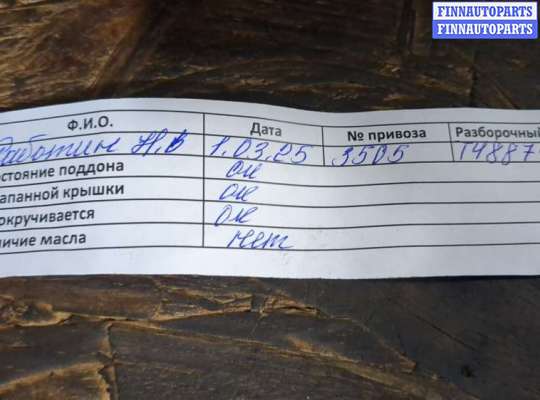 FINNAUTOPARTS
FINNAUTOPARTS
Ф.И.О. Дата № привоза Разборочный
Н.В 1.03.25 3505 14887
стояние поддона ок
апанной крышки ок
окручивается ок
ичие масла нет